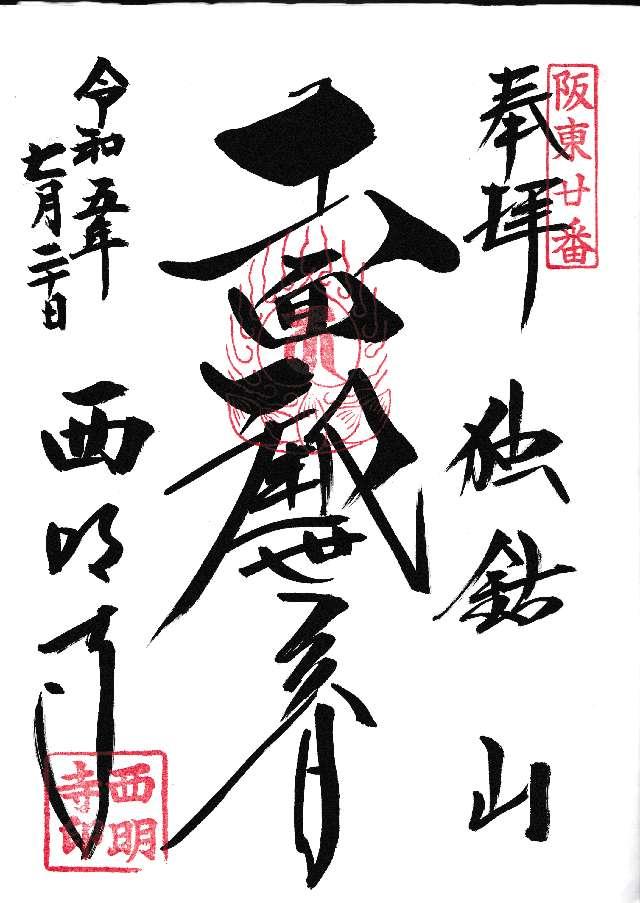 阪東廿番
奉拝
独鈷山
観世音
令和五年
七月二十日
西明寺
西明
寺印